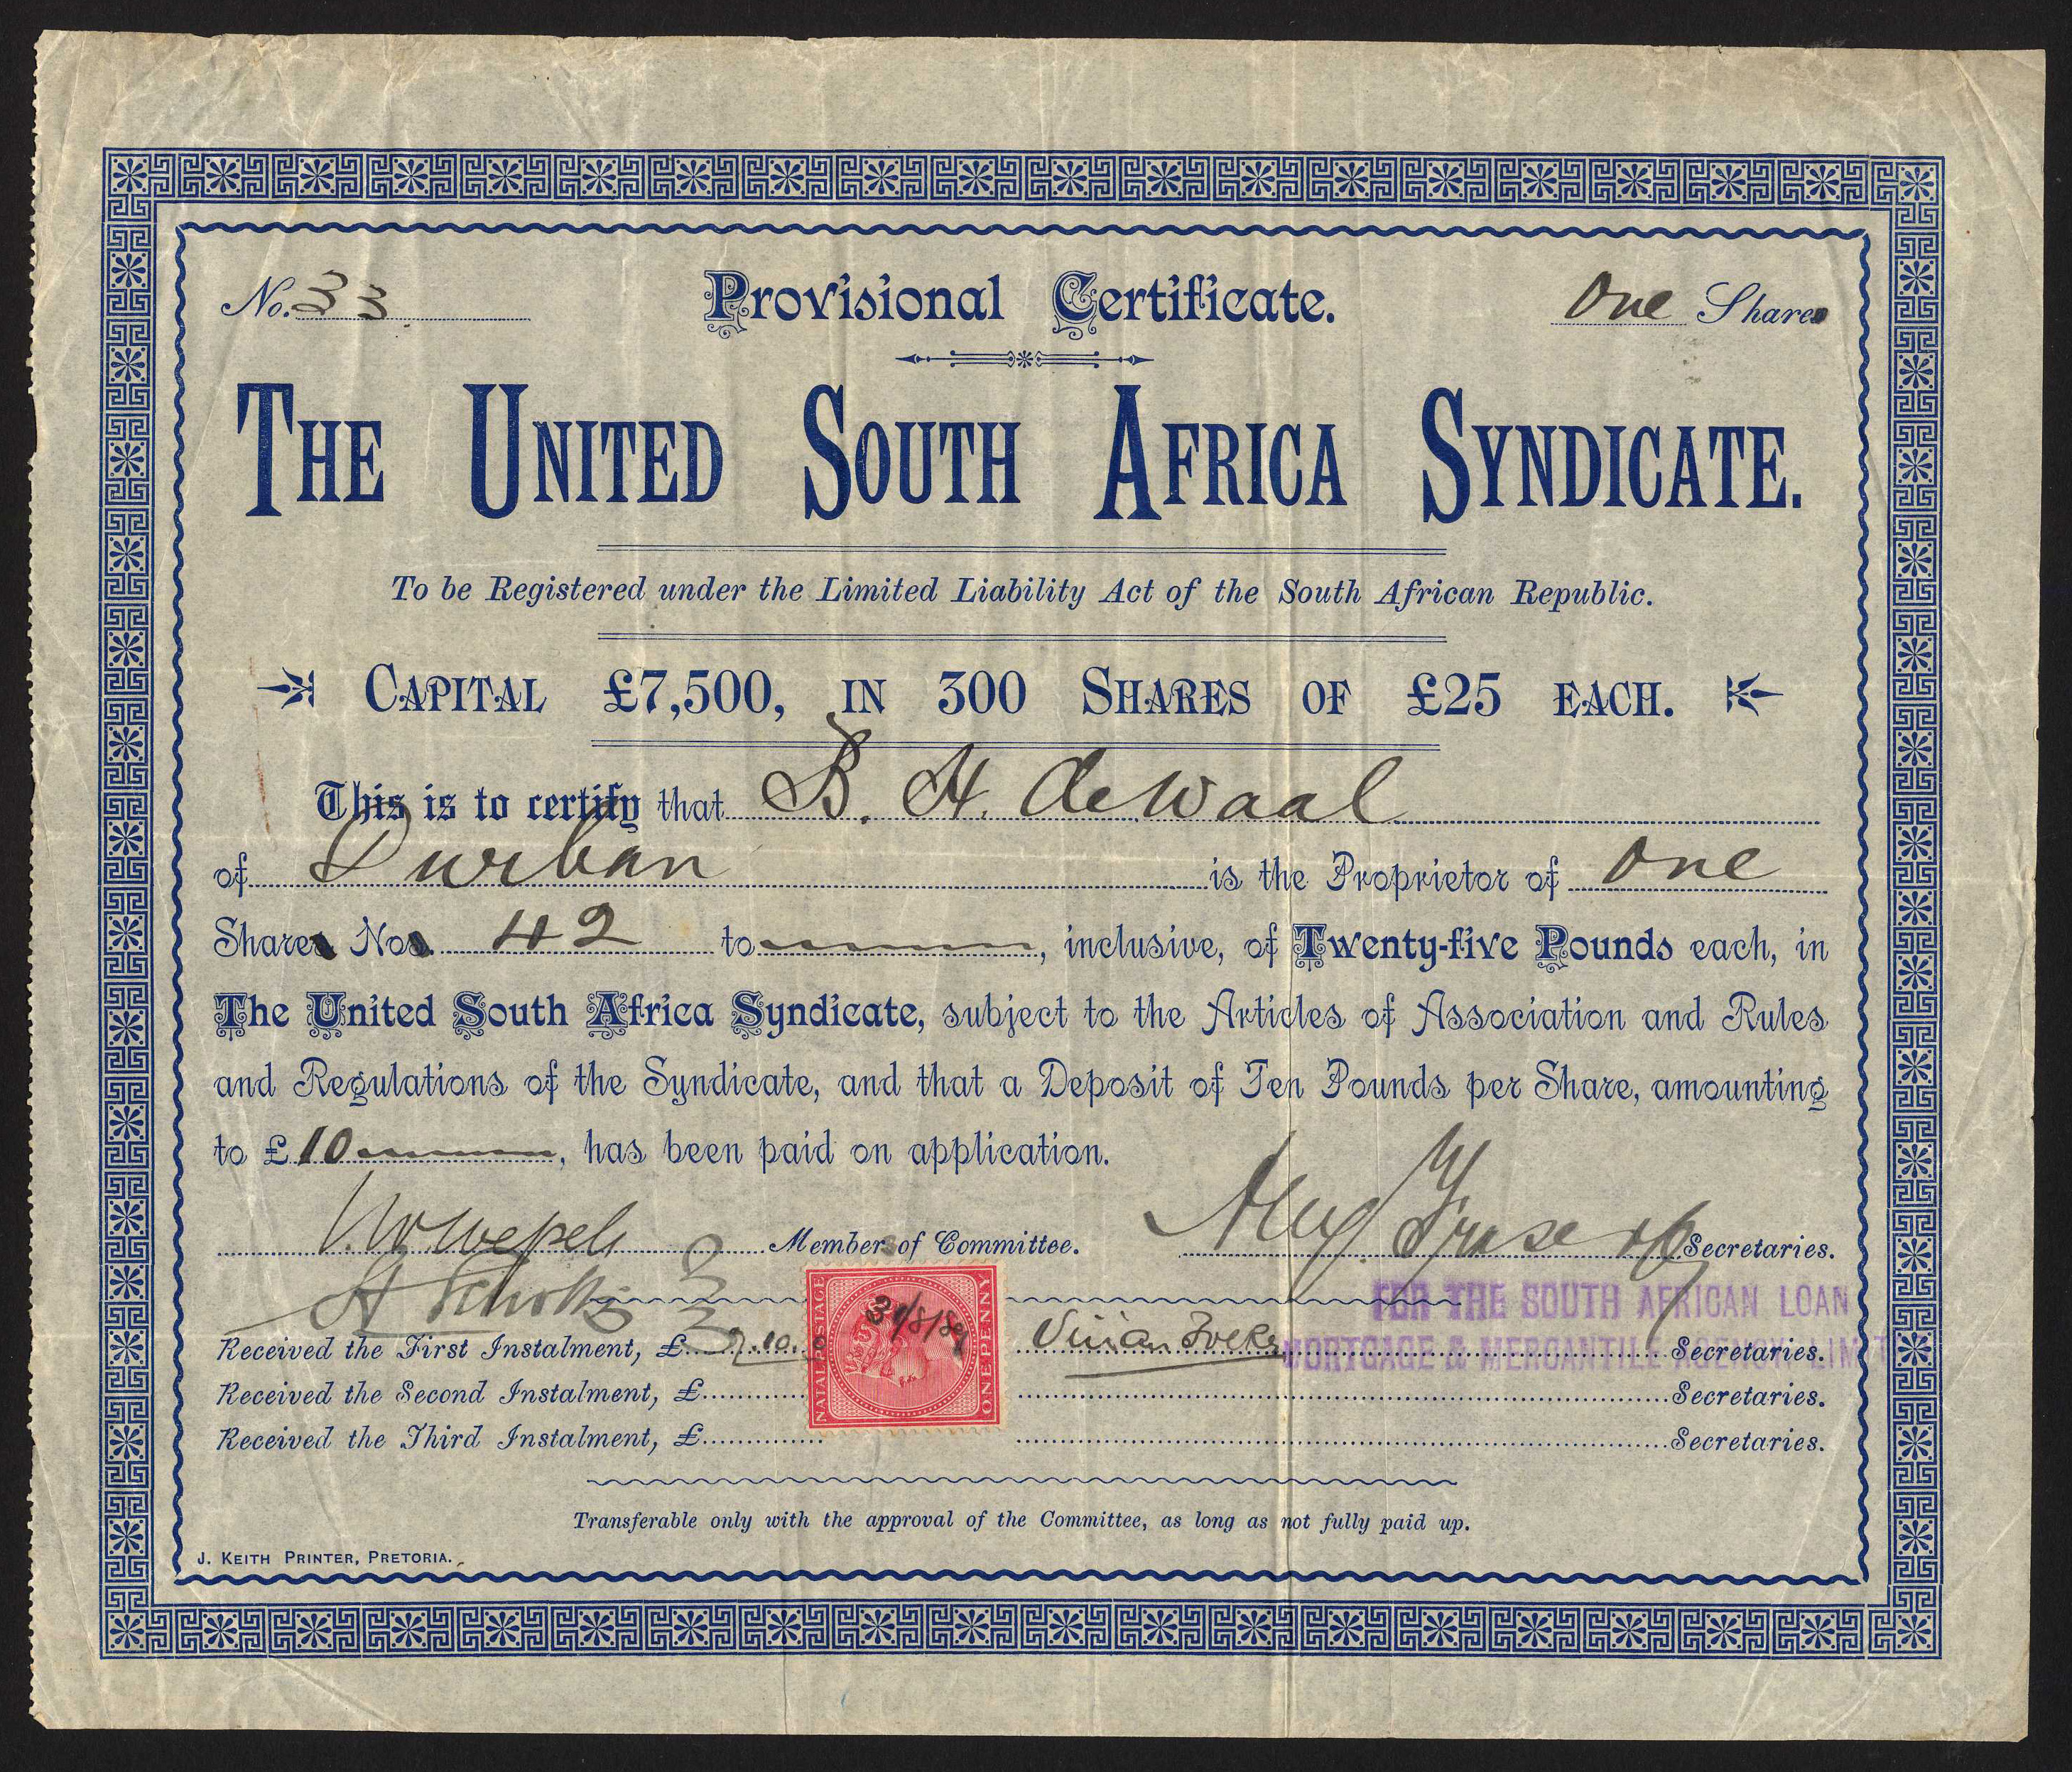 No. 33 Provisional Certificate. One Share
THE UNITED SOUTH AFRICA SYNDICATE.
To be Registered under the Limited Liability Act of the South African Republic.
CAPITAL £7,500, IN 300 SHARES OF £25 EACH.
This is to certify that B. H. de Waal
of Durban is the Proprietor of One
Share No. 42 to, inclusive, of Twenty-five Pounds each, in
The United South Africa Syndicate, subject to the Articles of Association and Rules
and Regulations of the Syndicate, and that a Deposit of Ten Pounds per Share, amounting
to £ 10, has been paid on application.
Members of Committee. Secretaries.
FOR THE SOUTH AFRICAN LOAN
NATAL POSTAGE ONE PENNY
Received the First Instalment, £ Secretaries.
MORTGAGE & MERCANTILE AGENCY LIMIT
Received the Second Instalment, £ Secretaries.
Received the Third Instalment, £ Secretaries.
Transferable only with the approval of the Committee, as long as not fully paid up.
J. KEITH PRINTER, PRETORIA.